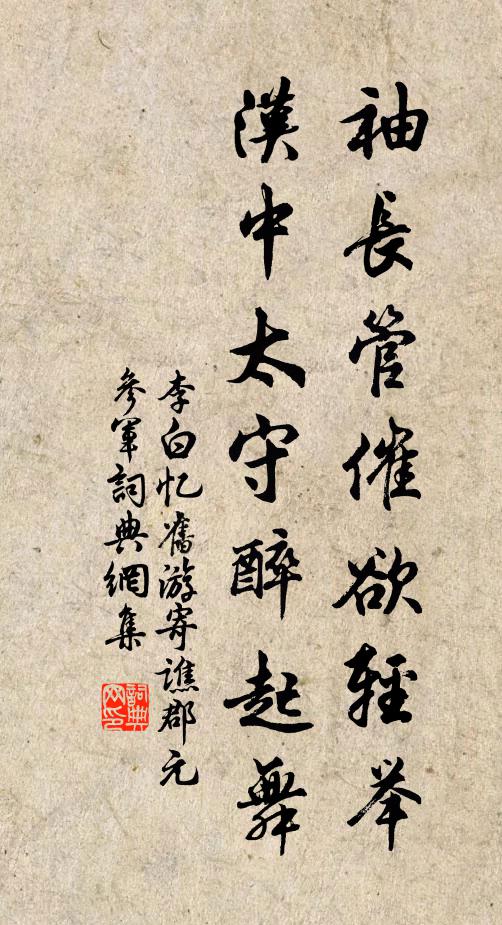 袖長管催欲輕举
漢中太守醉起舞
李白忆舊游寄譙郡元
參軍詞典網集
詞典
网印